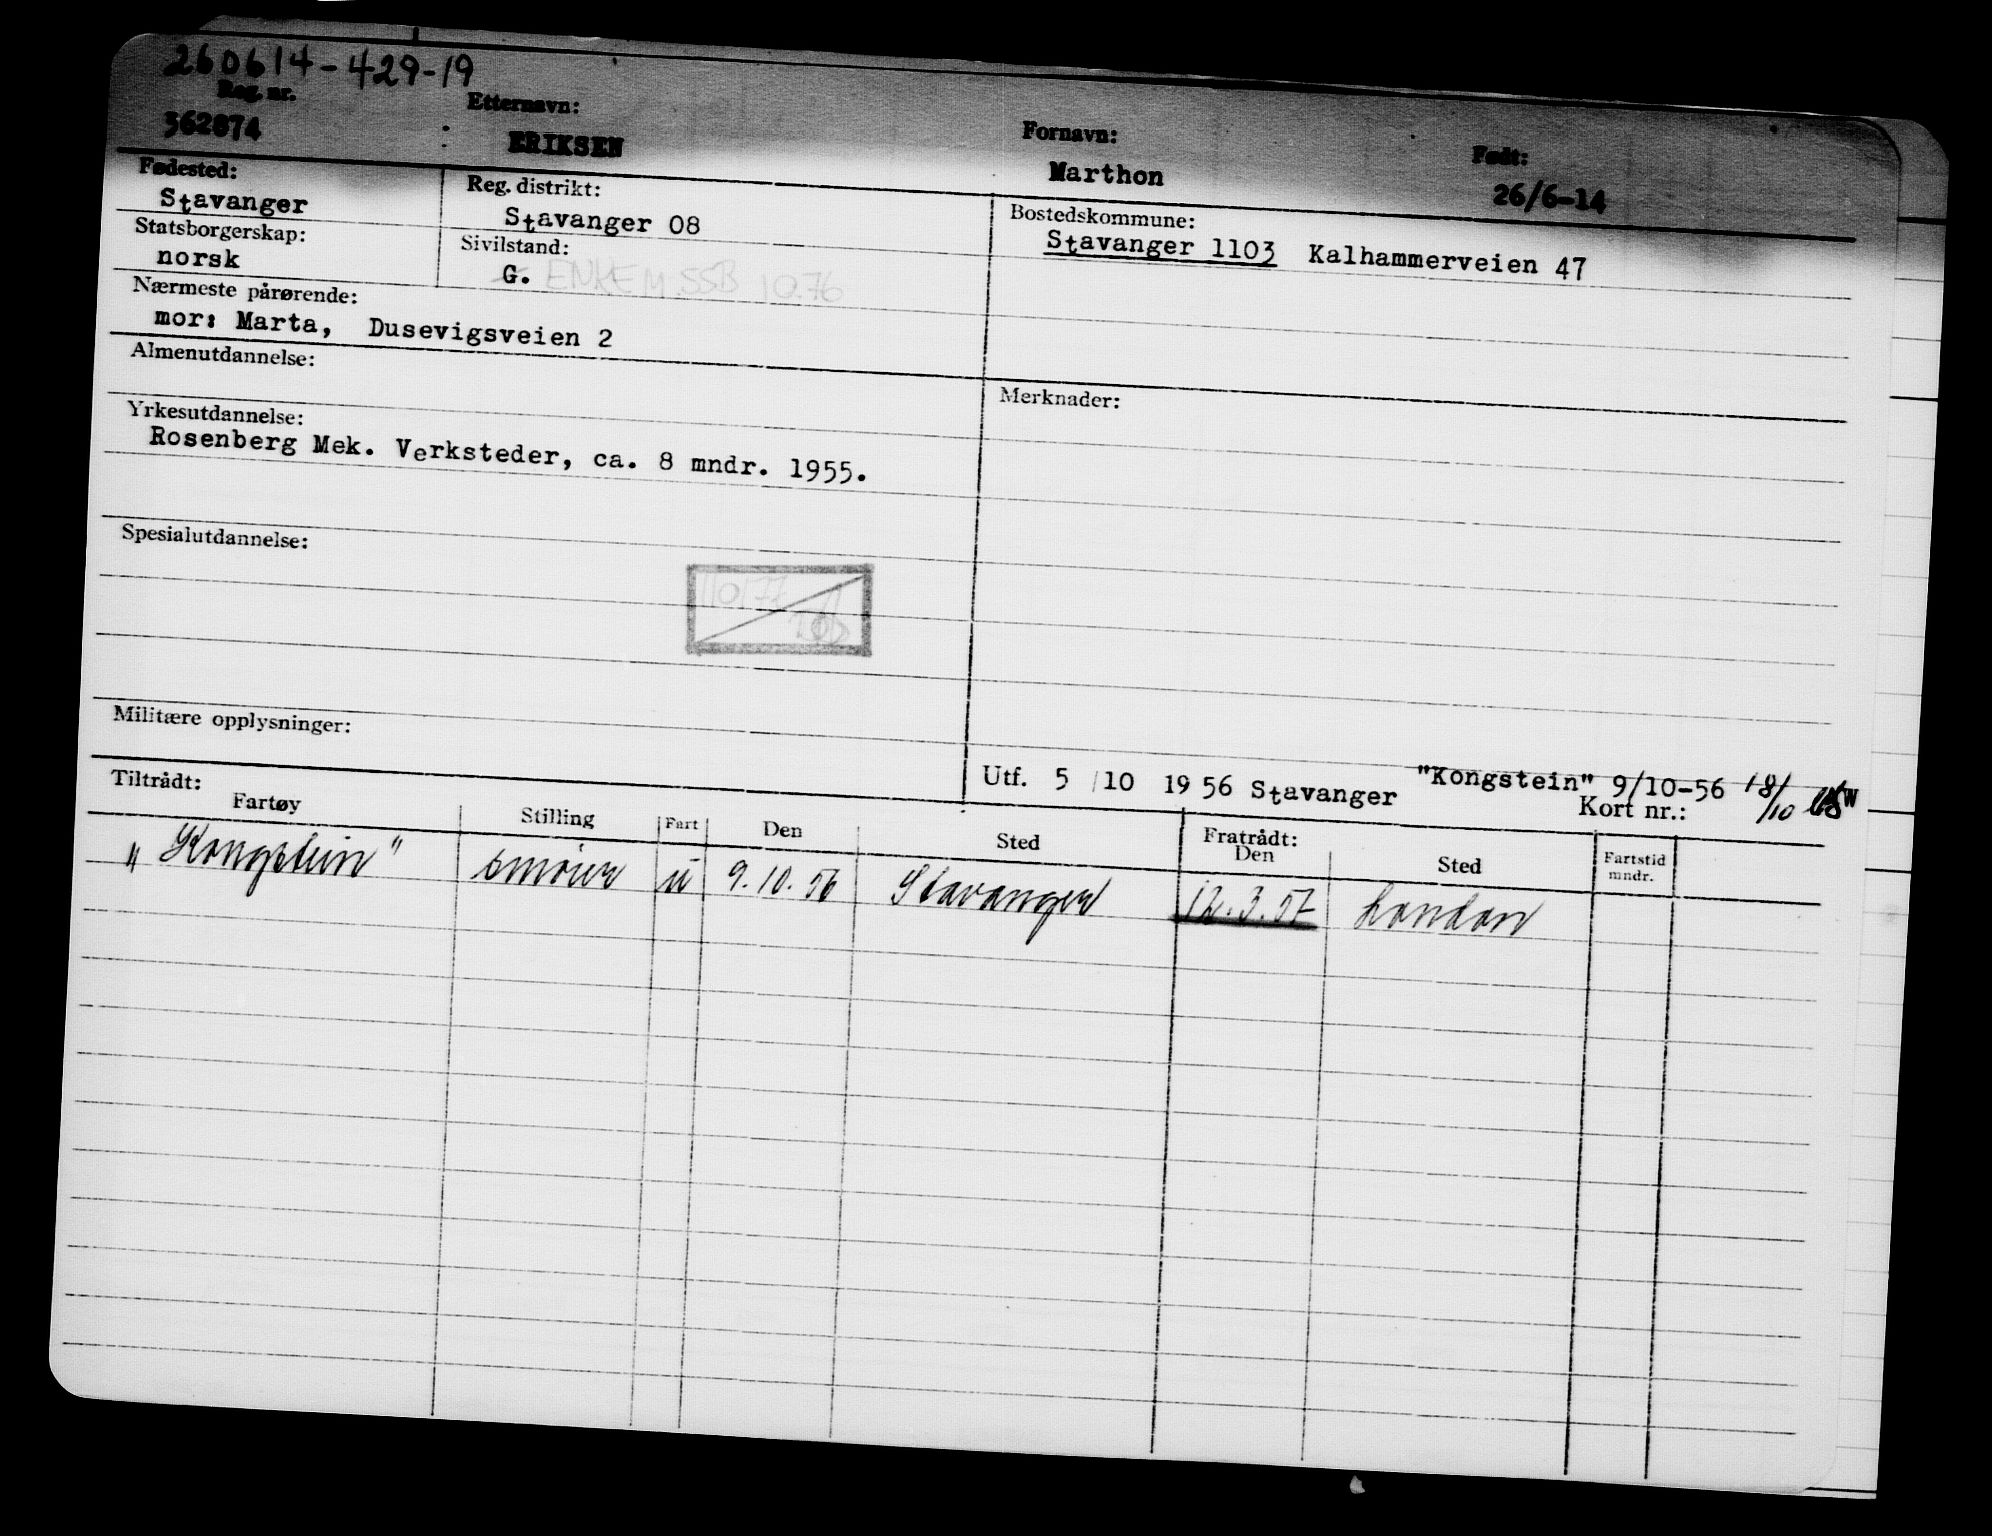 260614-429-19
Reg. nr. Etternavn: Fornavn: Født:
362874 ERIKSEN Marthon 26/6-14
Fødested: Reg. distrikt: Bostedskommune:
Stavanger Stavanger 08 Stavanger 1103 Kalhammerveien 47
Statsborgerskap: Sivilstand:
norsk G. ENKEM.SSB 10.76
Nærmeste pårørende:
mor: Marta, Dusevigsveien 2
Almenutdannelse: Merknader:
Yrkesutdannelse:
Rosenberg Mek. Verksteder, ca. 8 mndr. 1955.
Spesialutdannelse:
Militære opplysninger:
Utf. 5/10 1956 Stavanger "Kongstein" 9/10-56 18/10
Kort nr.:
Tiltrådt: Fratrådt:
Fartøy Stilling Fart Den Sted Den Sted Fartstid mndr.
"Kongstein" smører u 9.10.56 Stavanger 12.3.57 London